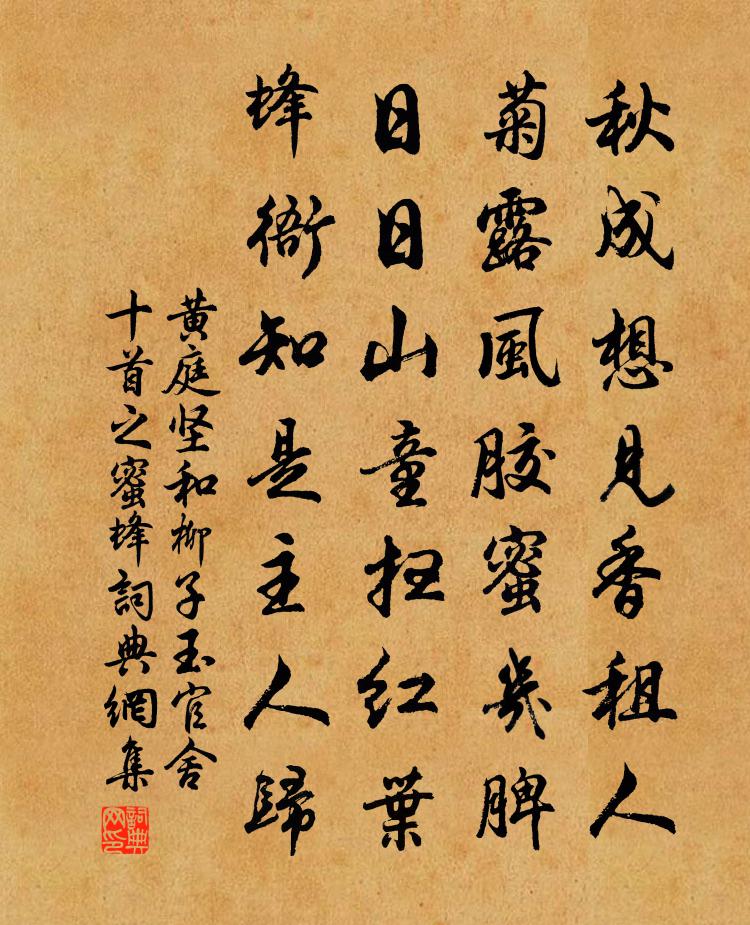 秋成想見香租人
菊露風胶蜜幾脾
日日山童扫红葉
蜂衙知是主人歸
黄庭坚和柳子玉官舍
十首之蜜蜂詞典網集
詞典网印